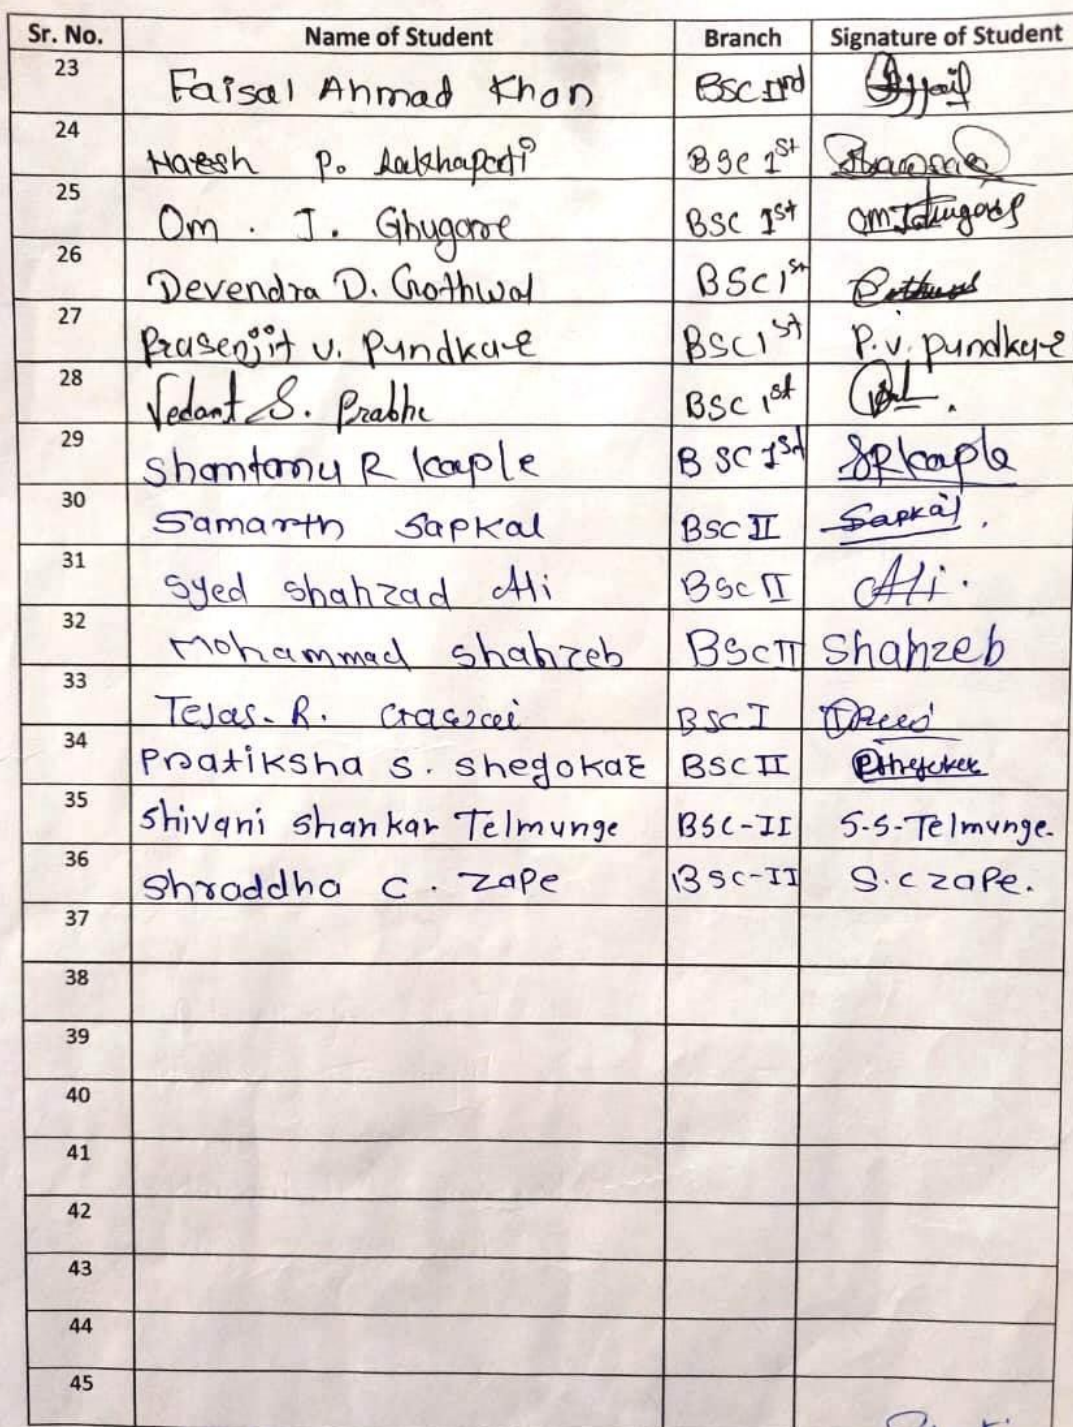 Sr. No. Name of Student Branch Signature of Student
23 Faisal Ahmad Khan BSC IInd
24 Haresh P. BSC 1st
25 Om . J. Ghugare BSC 1st
26 Devendra D. Gothwal BSC 1st
27 Prasenjit V. Pundkare BSC 1st P.V. Pundkare
28 Vedant S. Prabhe BSC 1st
29 Shantanu R Kaple BSC 1st SRkaple
30 Samarth Sapkal BSC II Sapkal.
31 Syed Shahzad Ali BSC II Ali.
32 Mohammad Shahzeb BSC II Shahzeb
33 Tejas. R. BSC I
34 Pratiksha S. Shegokar BSC II
35 Shivani Shankar Telmunge BSC-II S-S-Telmunge.
36 Shraddha C. Zape BSC-II S.C Zape.
37
38
39
40
41
42
43
44
45